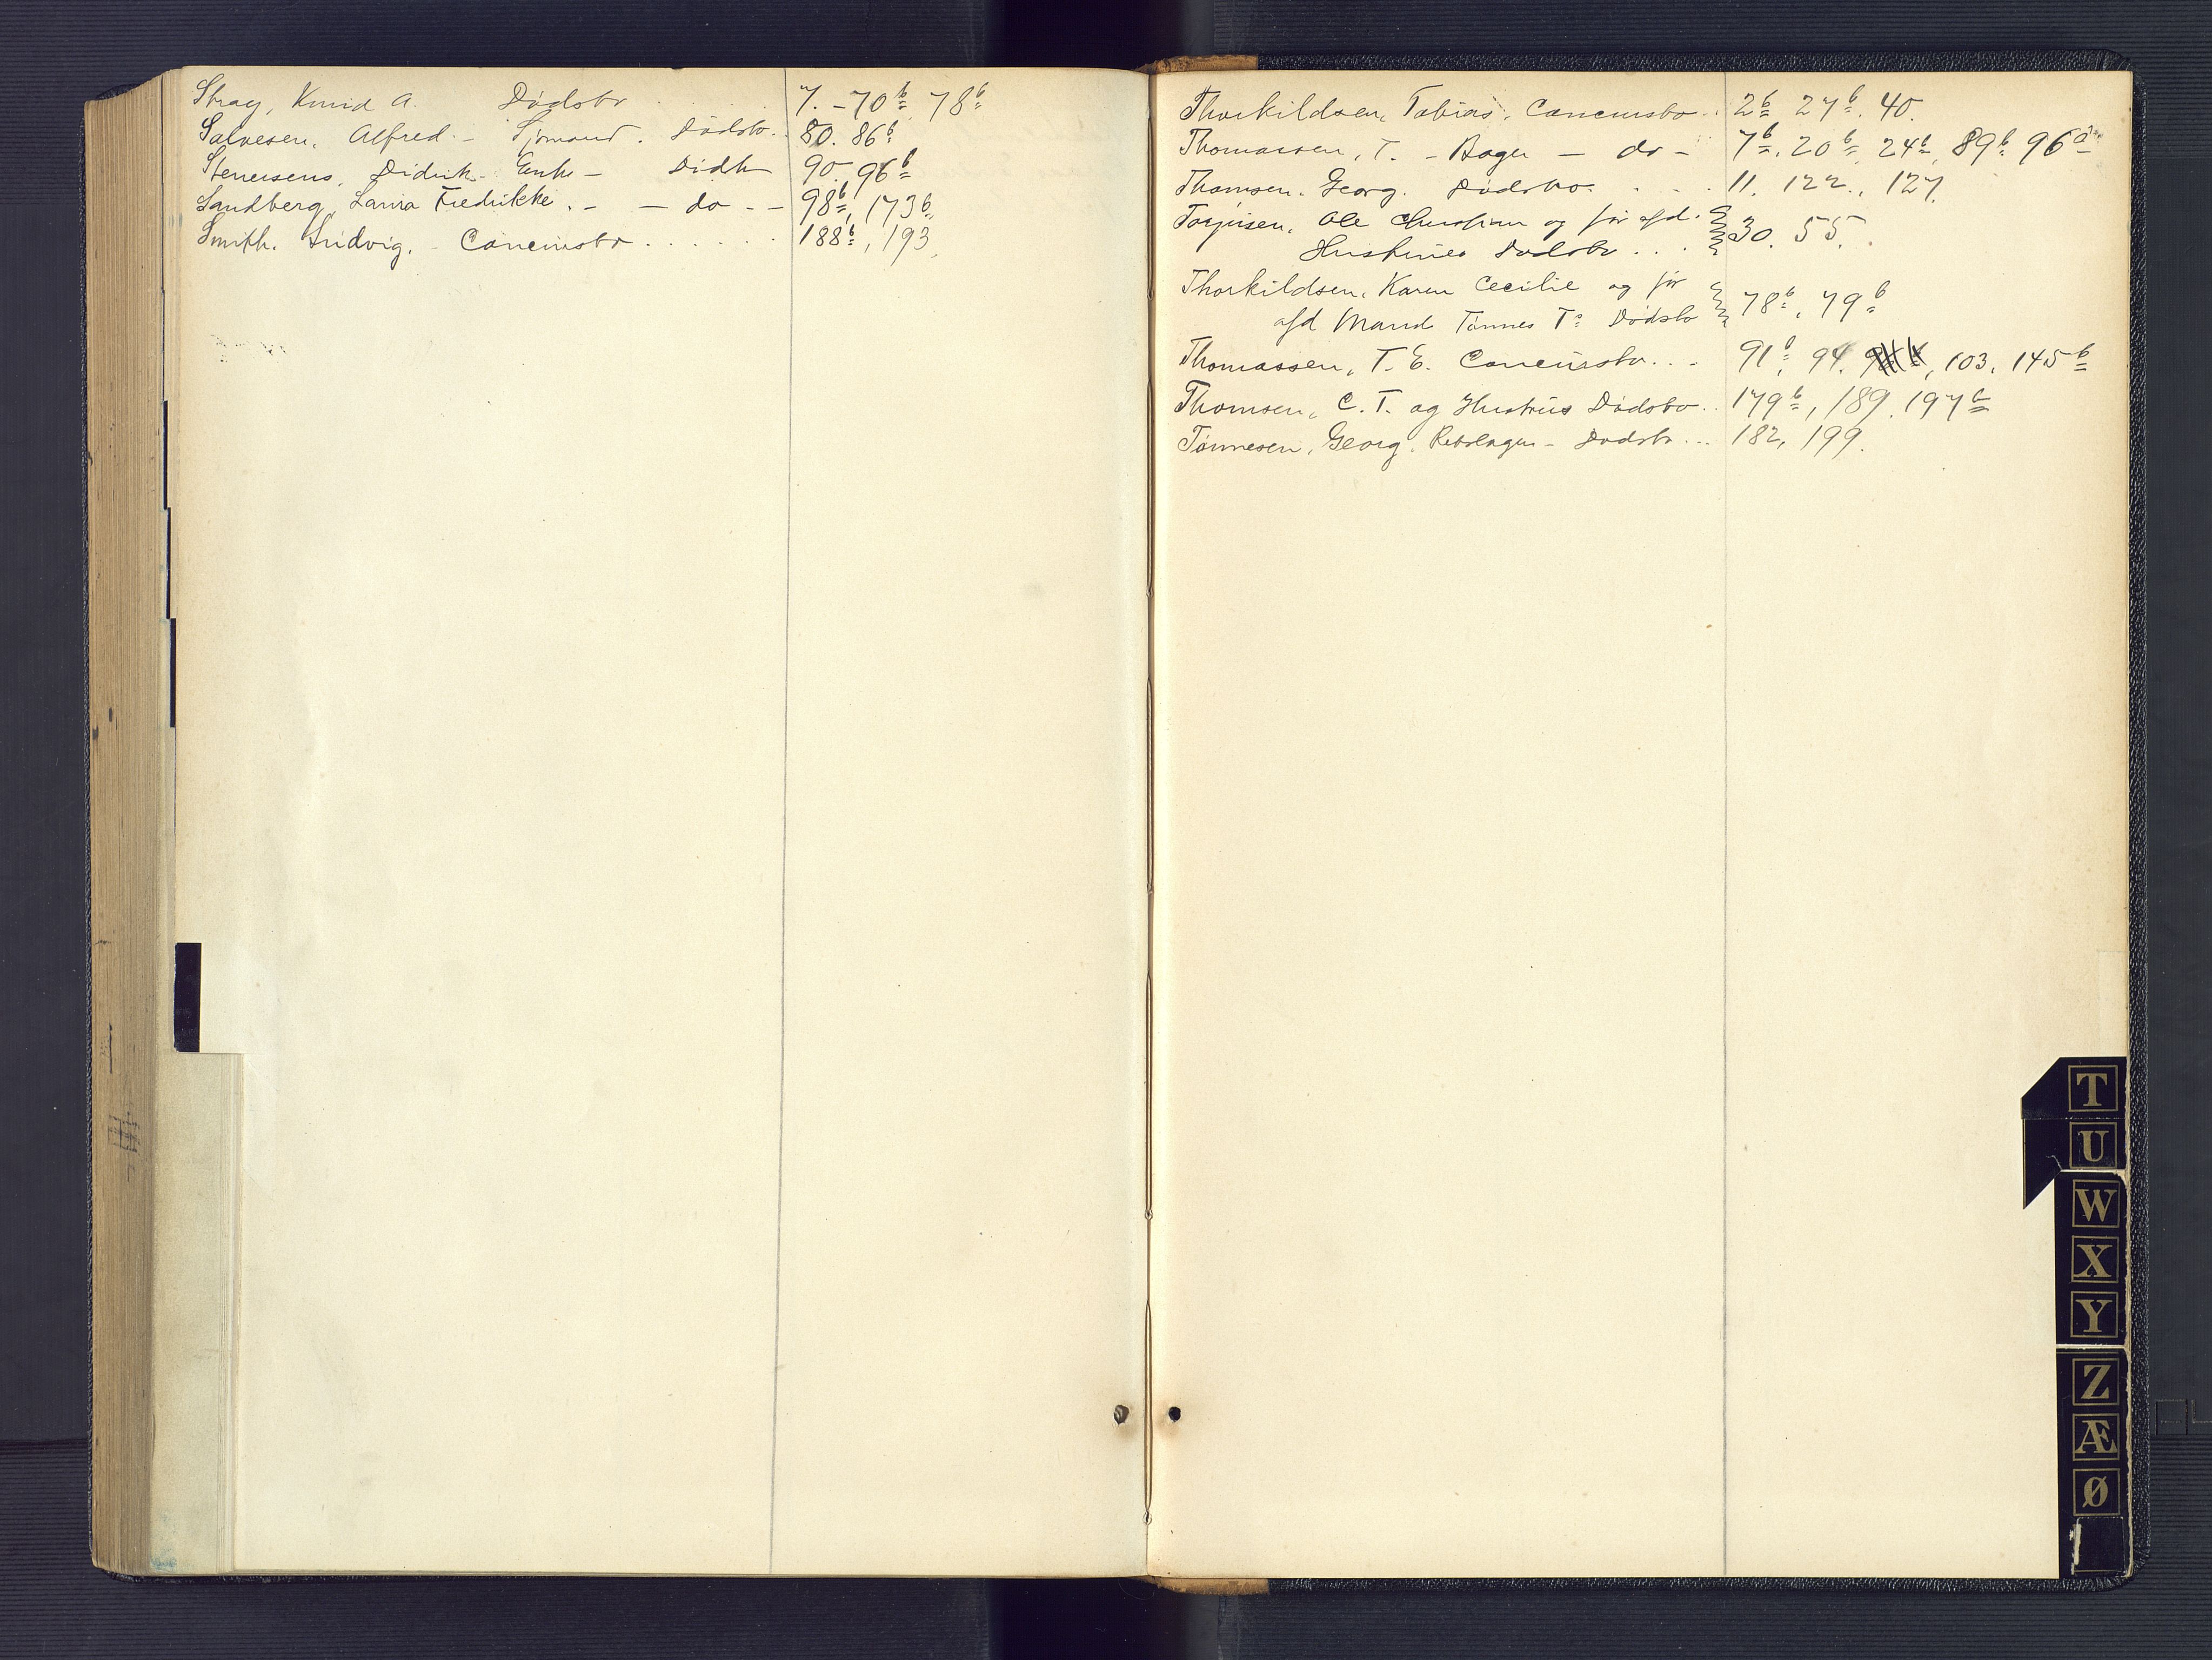 Stray, Knud A. Dødsbo . . . . 7. - 70b, 78b
Salvesen, Alfred. - Sjømand. Dødsbo. . 80. 86b
Stenersens, Didrik - Enke - Dødsb 90. 96b
Sandberg, Laura Fredrikke. - - do - - 98b, 173b,
Smith. Ludvig. - Concursbo . . . . . . 188b, 193.
Thorkildsen, Tobias, Concursbo . . 2b 27b. 40.
Thomassen, T. - Bager - do - 7b. 20b, 24b, 89b 96a
Thomsen. Georg. Dødsbo. . . . 11. 122., 127.
Torjusen, Ole Christian og før afd.
Hustrues Dødsbo . . . 30. 55.
Thorkildsen, Karen Cecilie og før
afd Mand Tønnes Ts Dødsbo 78b, 79b
Thomassen, T. E. Concursbo. . . 91b, 94. , 103. 145b
Thomsen, C. T. og Hustrus Dødsbo. . 179b, 189. 197b
Tønnesen, Georg. Rebslager - Dødsbo . . . 182, 199.
T
U
W
X
Y
Z
Æ
Ø